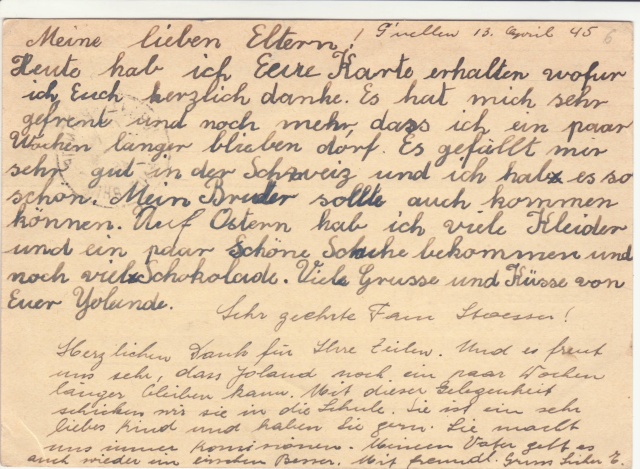 Meine lieben Eltern! G'uellen 13. April 45 6
Heute hab ich Eeure Karte erhalten wofür
ich Euch herzlich danke. Es hat mich sehr
gefreut und noch mehr dass ich ein paar
Wochen langer blieben dorf. Es gefällt mir
sehr gut in der Schweiz und ich hab es so
schön. Mein Bruder sollte auch kommen
können. Auf Ostern hab ich viele Kleider
und ein paar schöne Schuhe bekommen und
noch viel Schokolade. Viele Grusse und Küsse von
Euer Yolande.
Sehr geehrte Fam
Herzlichen Dank für Ihre Zeilen. Und es freut
uns sehr, dass Joland noch ein paar Wochen
länger bleiben kann. Mit dieser Gelegenheit
schicken wir sie in die Schule. Sie ist ein sehr
liebes Kind und haben Sie gern. Sie macht
uns immer Meinem Vater geht es
auch wieder ein Besser. Mit freundl. Gruss